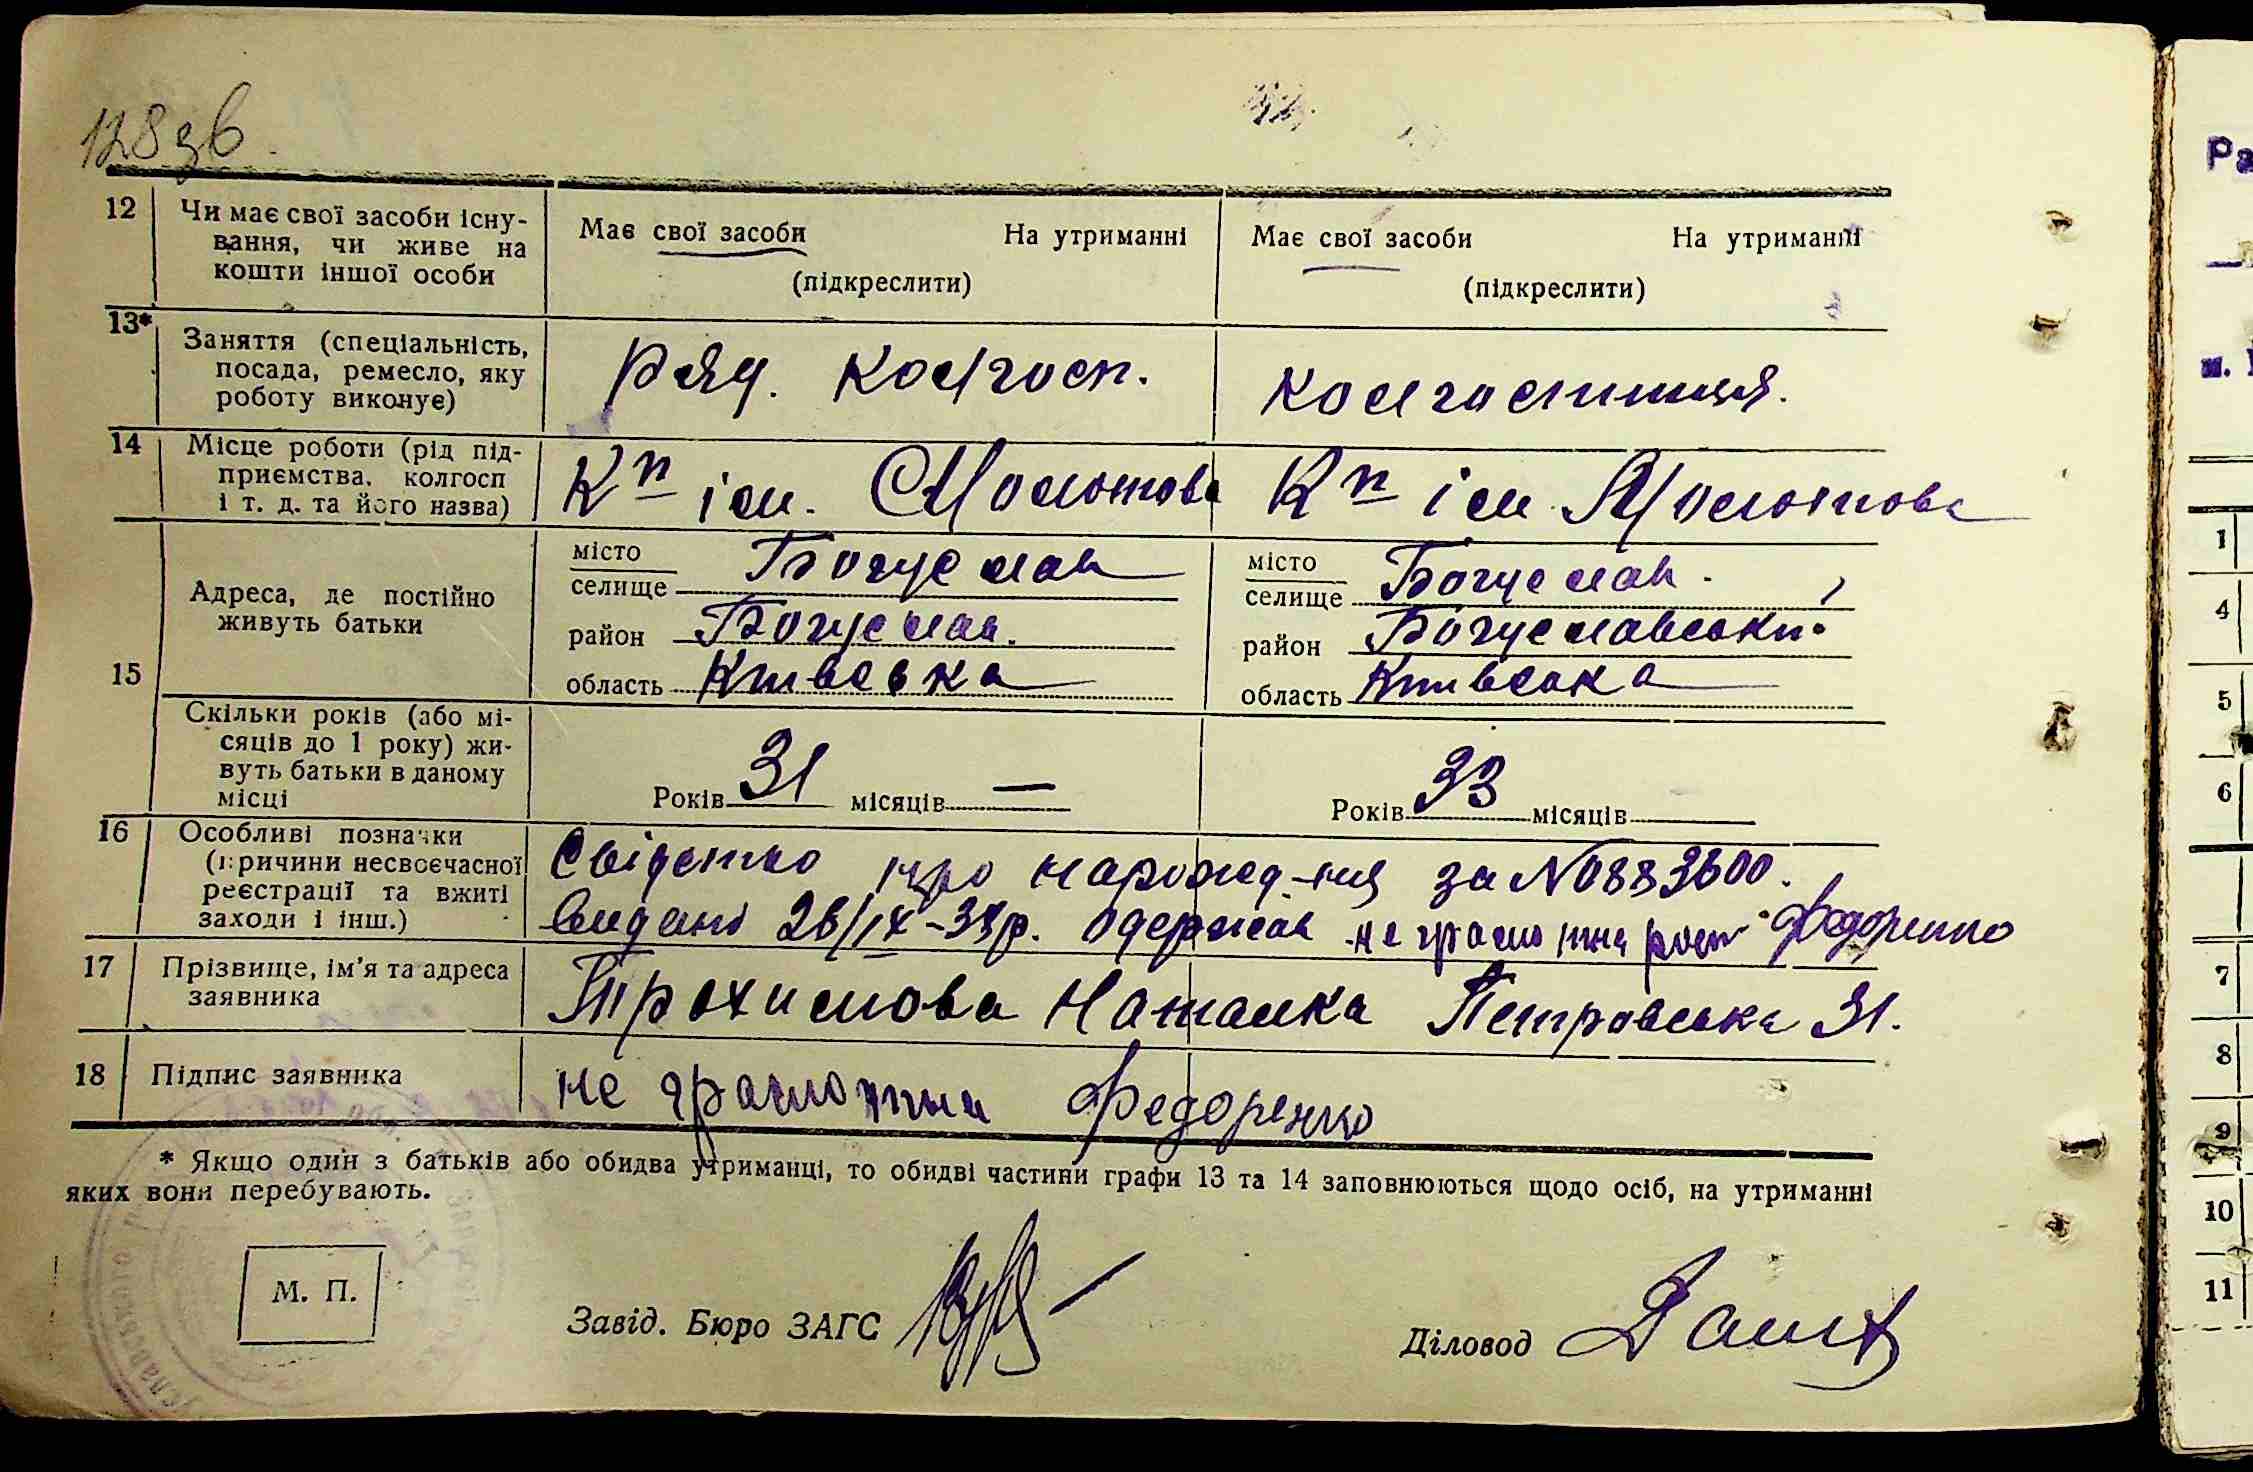 128 зв.
12 Чи має свої засоби існу-
вання, чи живе на
кошти іншої особи
Має свої засоби На утриманні
(підкреслити)
Має свої засоби На утриманні
(підкреслити)
13* Заняття (спеціальність,
посада, ремесло, яку
роботу виконує)
Ряд. колгосп.
колгоспниця.
14 Місце роботи (рід під-
приємства, колгосп
і т. д. та його назва)
Кп ім. Молотова
Кп ім Молотова
15 Адреса, де постійно
живуть батьки
місто
селище Богуслав
район Богуслав.
область Київська
місто
селище Богуслав.
район Богуславськи
область Київська
Скільки років (або мі-
сяців до 1 року) жи-
вуть батьки в даному
місці
Років 31 місяців —
Років 33 місяців
16 Особливі позначки
(причини несвоєчасної
реєстрації та вжиті
заходи і інш.)
Свідетво про народжд-ння за № 0883600.
видані 26/IX-38р. одержав не грамотна росп Федоренко
17 Прізвище, ім'я та адреса
заявника
Трохимова Наталка Петровська 31.
18 Підпис заявника
не грамотни Федоренко
* Якщо один з батьків або обидва утриманці, то обидві частини графи 13 та 14 заповнюються щодо осіб, на утриманні
яких вони перебувають.
М. П.
Завід. Бюро ЗАГС
Діловод
Ра
1
4
5
6
7
8
9
10
11